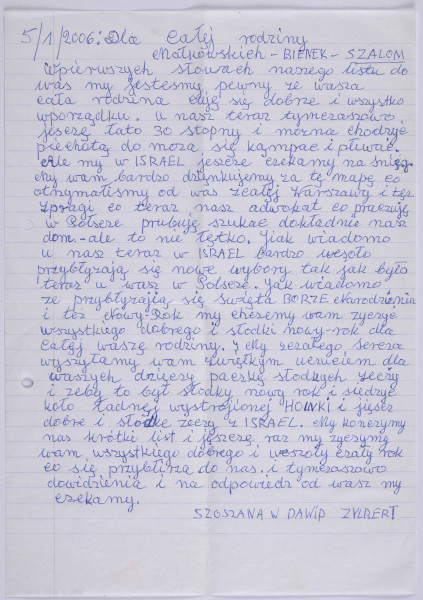 5/1/2006: Dla całej rodziny
Małkowskich - BIENEK - SZALOM
Wpierwszych słowach naszego listu do
was my jestesmy pewny ze wasza
cała rodzina czuję się dobrze i wszystko
wporządku. u nas teraz tymczasowo
jeszczę lato 30 stopny i mozna chodzyć
piechotą do moza się kąmpac i pływać.
Ale my w ISRAEL jeszcze czekamy na śnieg.
My wam bardzo dzynkujemy za tę mapę co
otrzymaliśmy od was zcałej Warszawy i też
zpragi co teraz nasz adwokat co pracują
w Polsce prubują szukac dokładnie nasz
dom - ale to nie łętko. Jiak wiadomo
u nas teraz w ISRAEL bardzo wesoło
przybłyzają się nowe wybory tak jak było
teraz u was w Polsce. Jak wiadomo
ze przybłyzają się Swięta BORZE Narodzenia
i też Nowy-Rok my chcemy wam zyczyć
wszystkiego dobrego i słodki nowy-rok dla
całej waszę rodziny. I My zcałego serca
wyszyłamy wam zwięłkym uczuciem dla
waszych dzięczy paczkę słodkych zeczy
i zeby to był słodky nowy rok i siedzyć
koło ładnej wystrojonej HOINKI i jięsc
dobre i słodke zeczy z ISRAEL. My konczymy
nas krótki list i jeszczę raz my zyczymy
wam wszystkiego dobrego i wesoły czały rok
co się przybłirza do nas. i tymczasowo
dowidzenia i na odpowiedz od was my
czekamy.
SZOSZANA W DAWID ZYLBERT